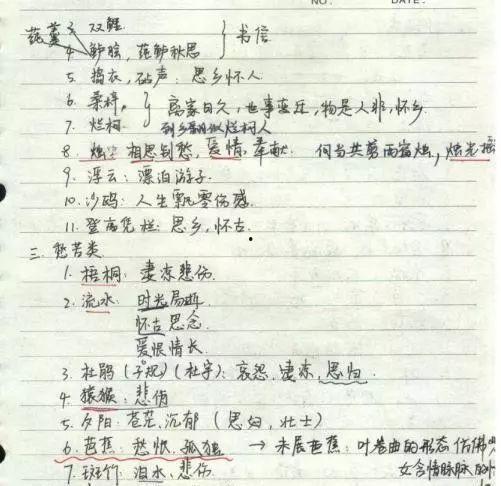 NO.
DATE.
莼羹 3. 双鲤
4. 鲈脍, 莼鲈秋思 } 书信
5. 捣衣, 砧声: 思乡怀人
6. 桑梓,
7. 烂柯 } 离家日久, 世事变迁, 物是人非, 怀乡
到乡翻似烂柯人
8. 烛: 相思别愁, 爱情, 奉献. 何当共剪西窗烛, 烛光
9. 浮云: 漂泊游子
10. 沙鸥: 人生飘零伤感
11. 登高凭栏: 思乡, 怀古
三. 愁苦类
1. 梧桐: 凄凉悲伤
2. 流水: 时光易逝
怀古思念
爱恨情长
3. 杜鹃 (子规) (杜宇): 哀怨, 凄凉, 思归
4. 猿猴: 悲伤
5. 夕阳: 苍茫, 沉郁 (思妇, 壮士)
6. 芭蕉: 愁恨, 孤独 → 未展芭蕉: 叶卷曲的形态仿佛
7. 斑竹: 泪水, 悲伤. 女含情脉脉的